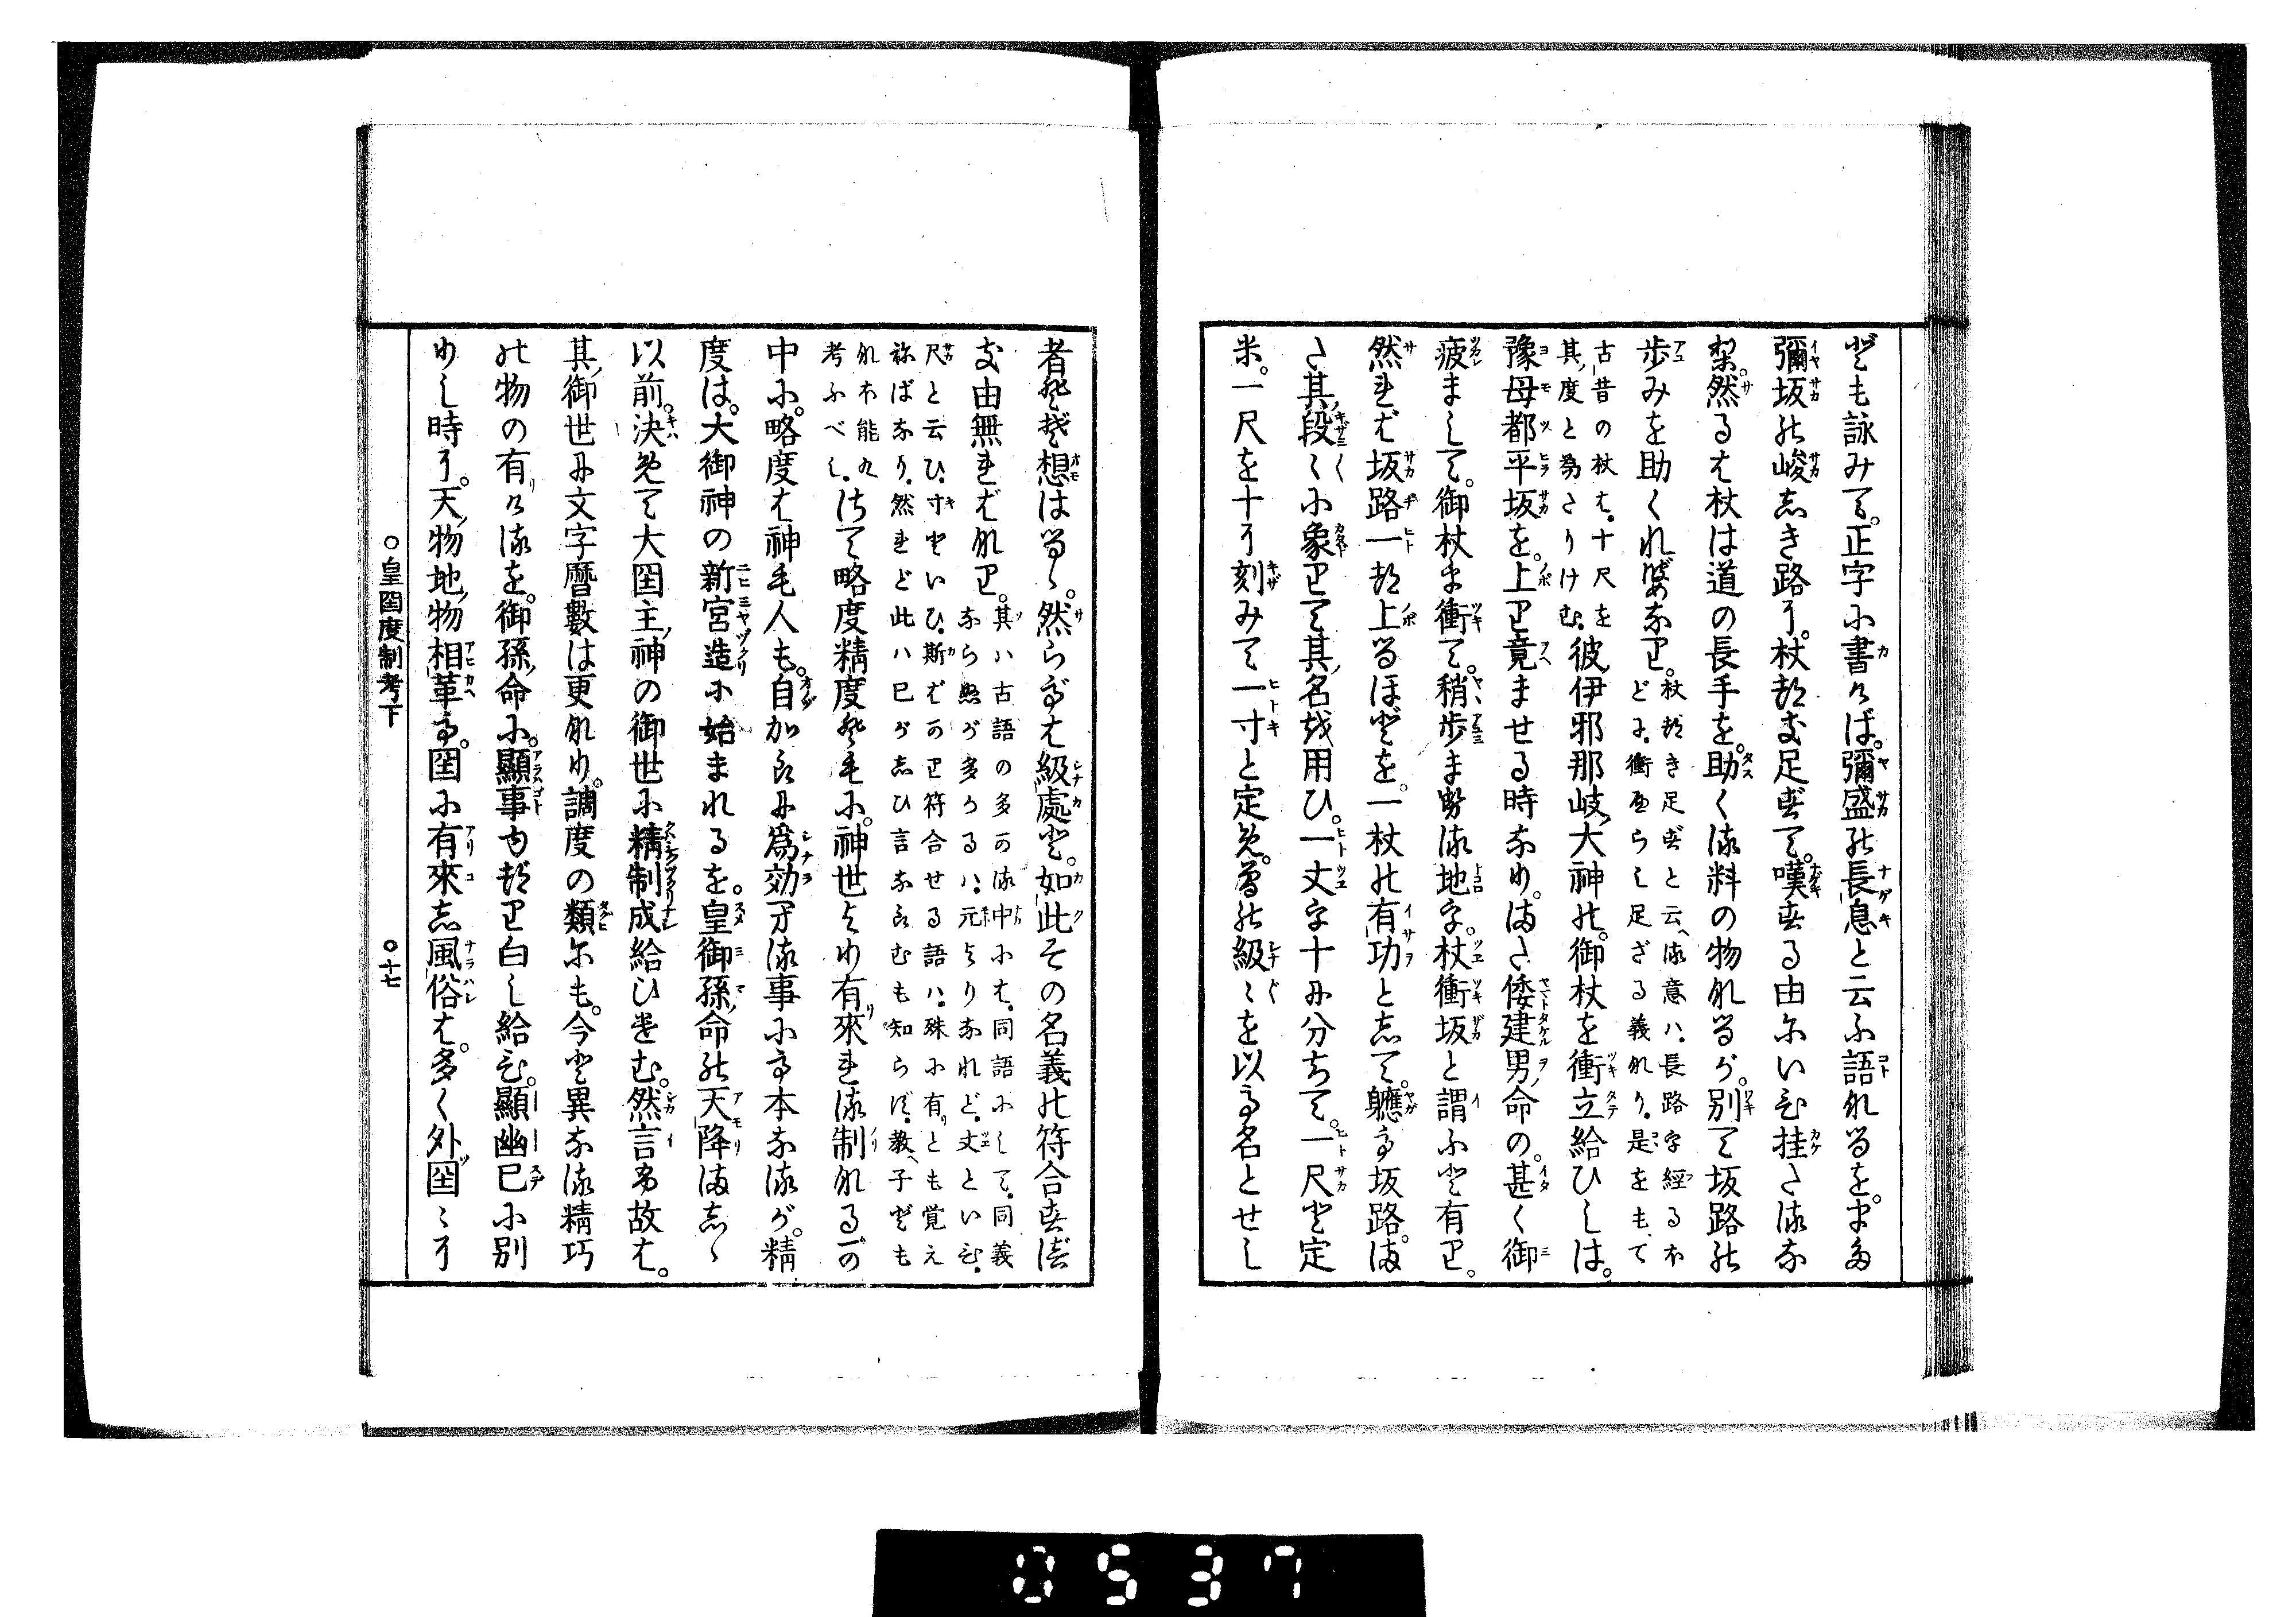 ども詠みて。正字に書かば。彌盛の長息と云ふ語なるを。また
彌坂の峻しき路に。杖都も足ずて。嘆する由にいひ挂たるな
り。然るは杖は道の長手を。助くる料の物なるが。別て坂路の
歩みを助くればなり。
杖都き足ずと云る意ハ。長路を經るほ
どに。衝盡らし足ざる義なり。是をもて
古昔の杖は。十尺を
其度と為たりけむ。
彼伊邪那岐大神の。御杖を衝立給ひしは。
豫母都平坂を。上り竟ませる時なり。また倭建男命の。甚く御
疲まして。御杖を衝て。稍歩ませる地を。杖衝坂と謂ふと有り。
然れば坂路一都上るほどを。一杖の有功として。軈て坂路。ま
た其段〻に象りて其名を用ひ。一丈を十に分ちて。一尺と定
米。一尺を十に刻みて一寸と定め。層の級〻を以て名とせし
者ぞと想はるゝ。然らでは級處と。如此その名義の符合すべ
き由無ればなり。
其ハ古語の多かる中には。同語にして。同義
ならぬが多かるハ。元よりなれど。丈といひ。
尺と云ひ。寸といひ。斯ばかり符合せる語ハ。殊に有とも覚え
祢ばなり。然れど此ハ己が志ひ言ならむも知らず。教子ども
なほ能く
考ふべし。
はて略度精度とも に。神世より有來れる制なるが
中に。略度は神も人も。自からに為効ひる事にて本なるが。精
度は。大御神の新宮造に始まれるを。皇御孫命の天降ましゝ
以前。決めて大国主神の御世に精制成給ひけむ。然言ふ故は。
其御世に文字暦數は更なり。調度の類にも。今と異なる精巧
の物の有けるを。御孫命に。顯事
白し給ひ。顯幽已に別
りし時に。天物地物相革て。国に有來し風俗は。多く外国〻に
○皇国度制考下
○十七
0537